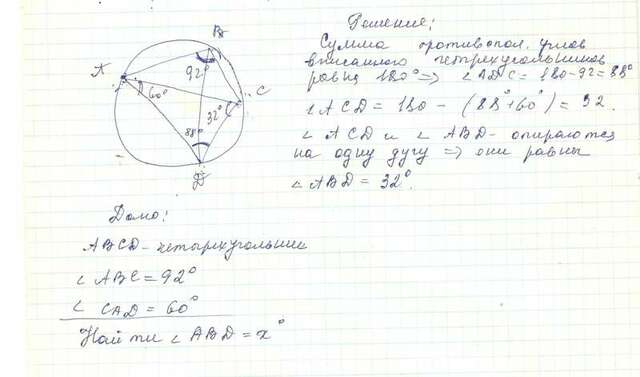 B
A
92°
60°
C
32°
88°
D
Решение:
Сумма противопол. углов
вписанного четырехугольников
равна 180° => ∠ADC = 180-92=88°
∠ACD = 180 - (88°+60°) = 32.
∠ACD и ∠ABD - опираются
на одну дугу => они равны
∠ABD = 32°.
Дано:
ABCD - четырехугольник
∠ABC = 92°
∠CAD = 60°
Найти ∠ABD = x°